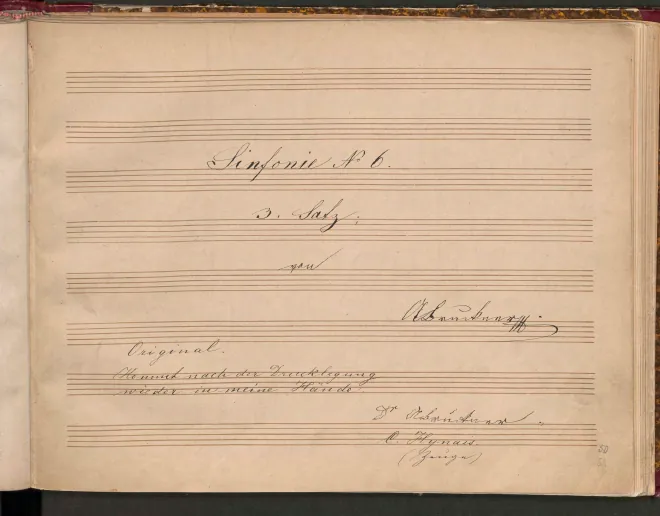 Sinfonie No 6.
3. Satz;
von
ABruckner
Original.
Kommt nach der Drucklegung
wieder in meine Hände.
Dr ABruckner
C. Hynais
(Zeuge)
50